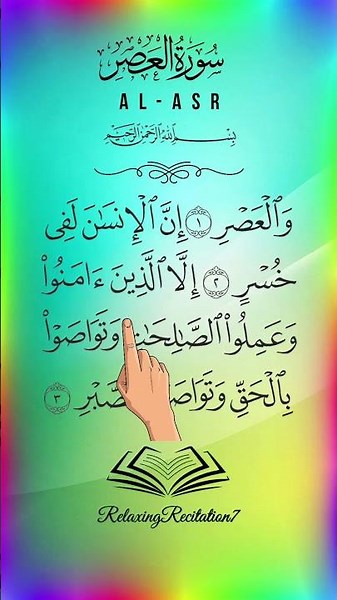 سُورَةُ الْعَصْرِ
AL-ASR
بِسْمِ اللَّهِ الرَّحْمَٰنِ الرَّحِيمِ
وَٱلْعَصْرِ ١ إِنَّ ٱلْإِنسَـٰنَ لَفِى
خُسْرٍ ٢ إِلَّا ٱلَّذِينَ ءَامَنُوا۟
وَعَمِلُوا۟ ٱلصَّـٰلِحَـٰتِ وَتَوَاصَوْا۟
بِٱلْحَقِّ وَتَوَاصَ ٱلصَّبْرِ ٣
RelaxingRecitation7